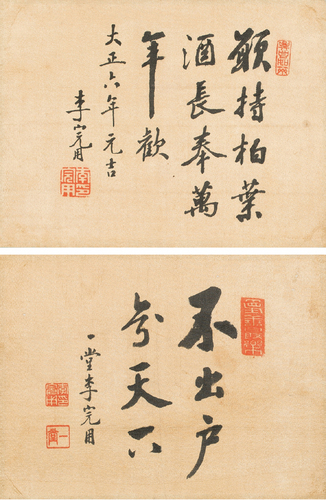 願持柏葉
酒長奉萬
年歡
大正六年元吉
李完用
不出戶
天下
一堂李完用
一堂